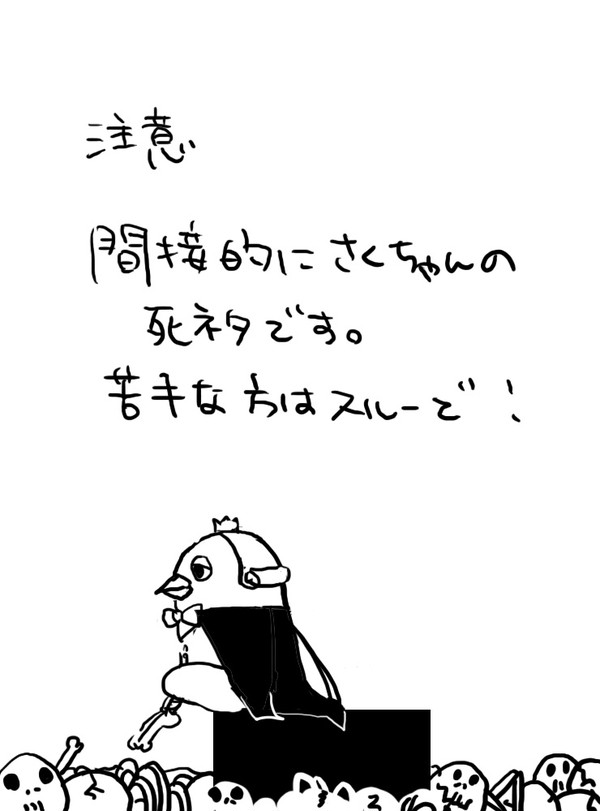 注意
間接的にさくちゃんの
死ネタです。
苦手な方はスルーで!